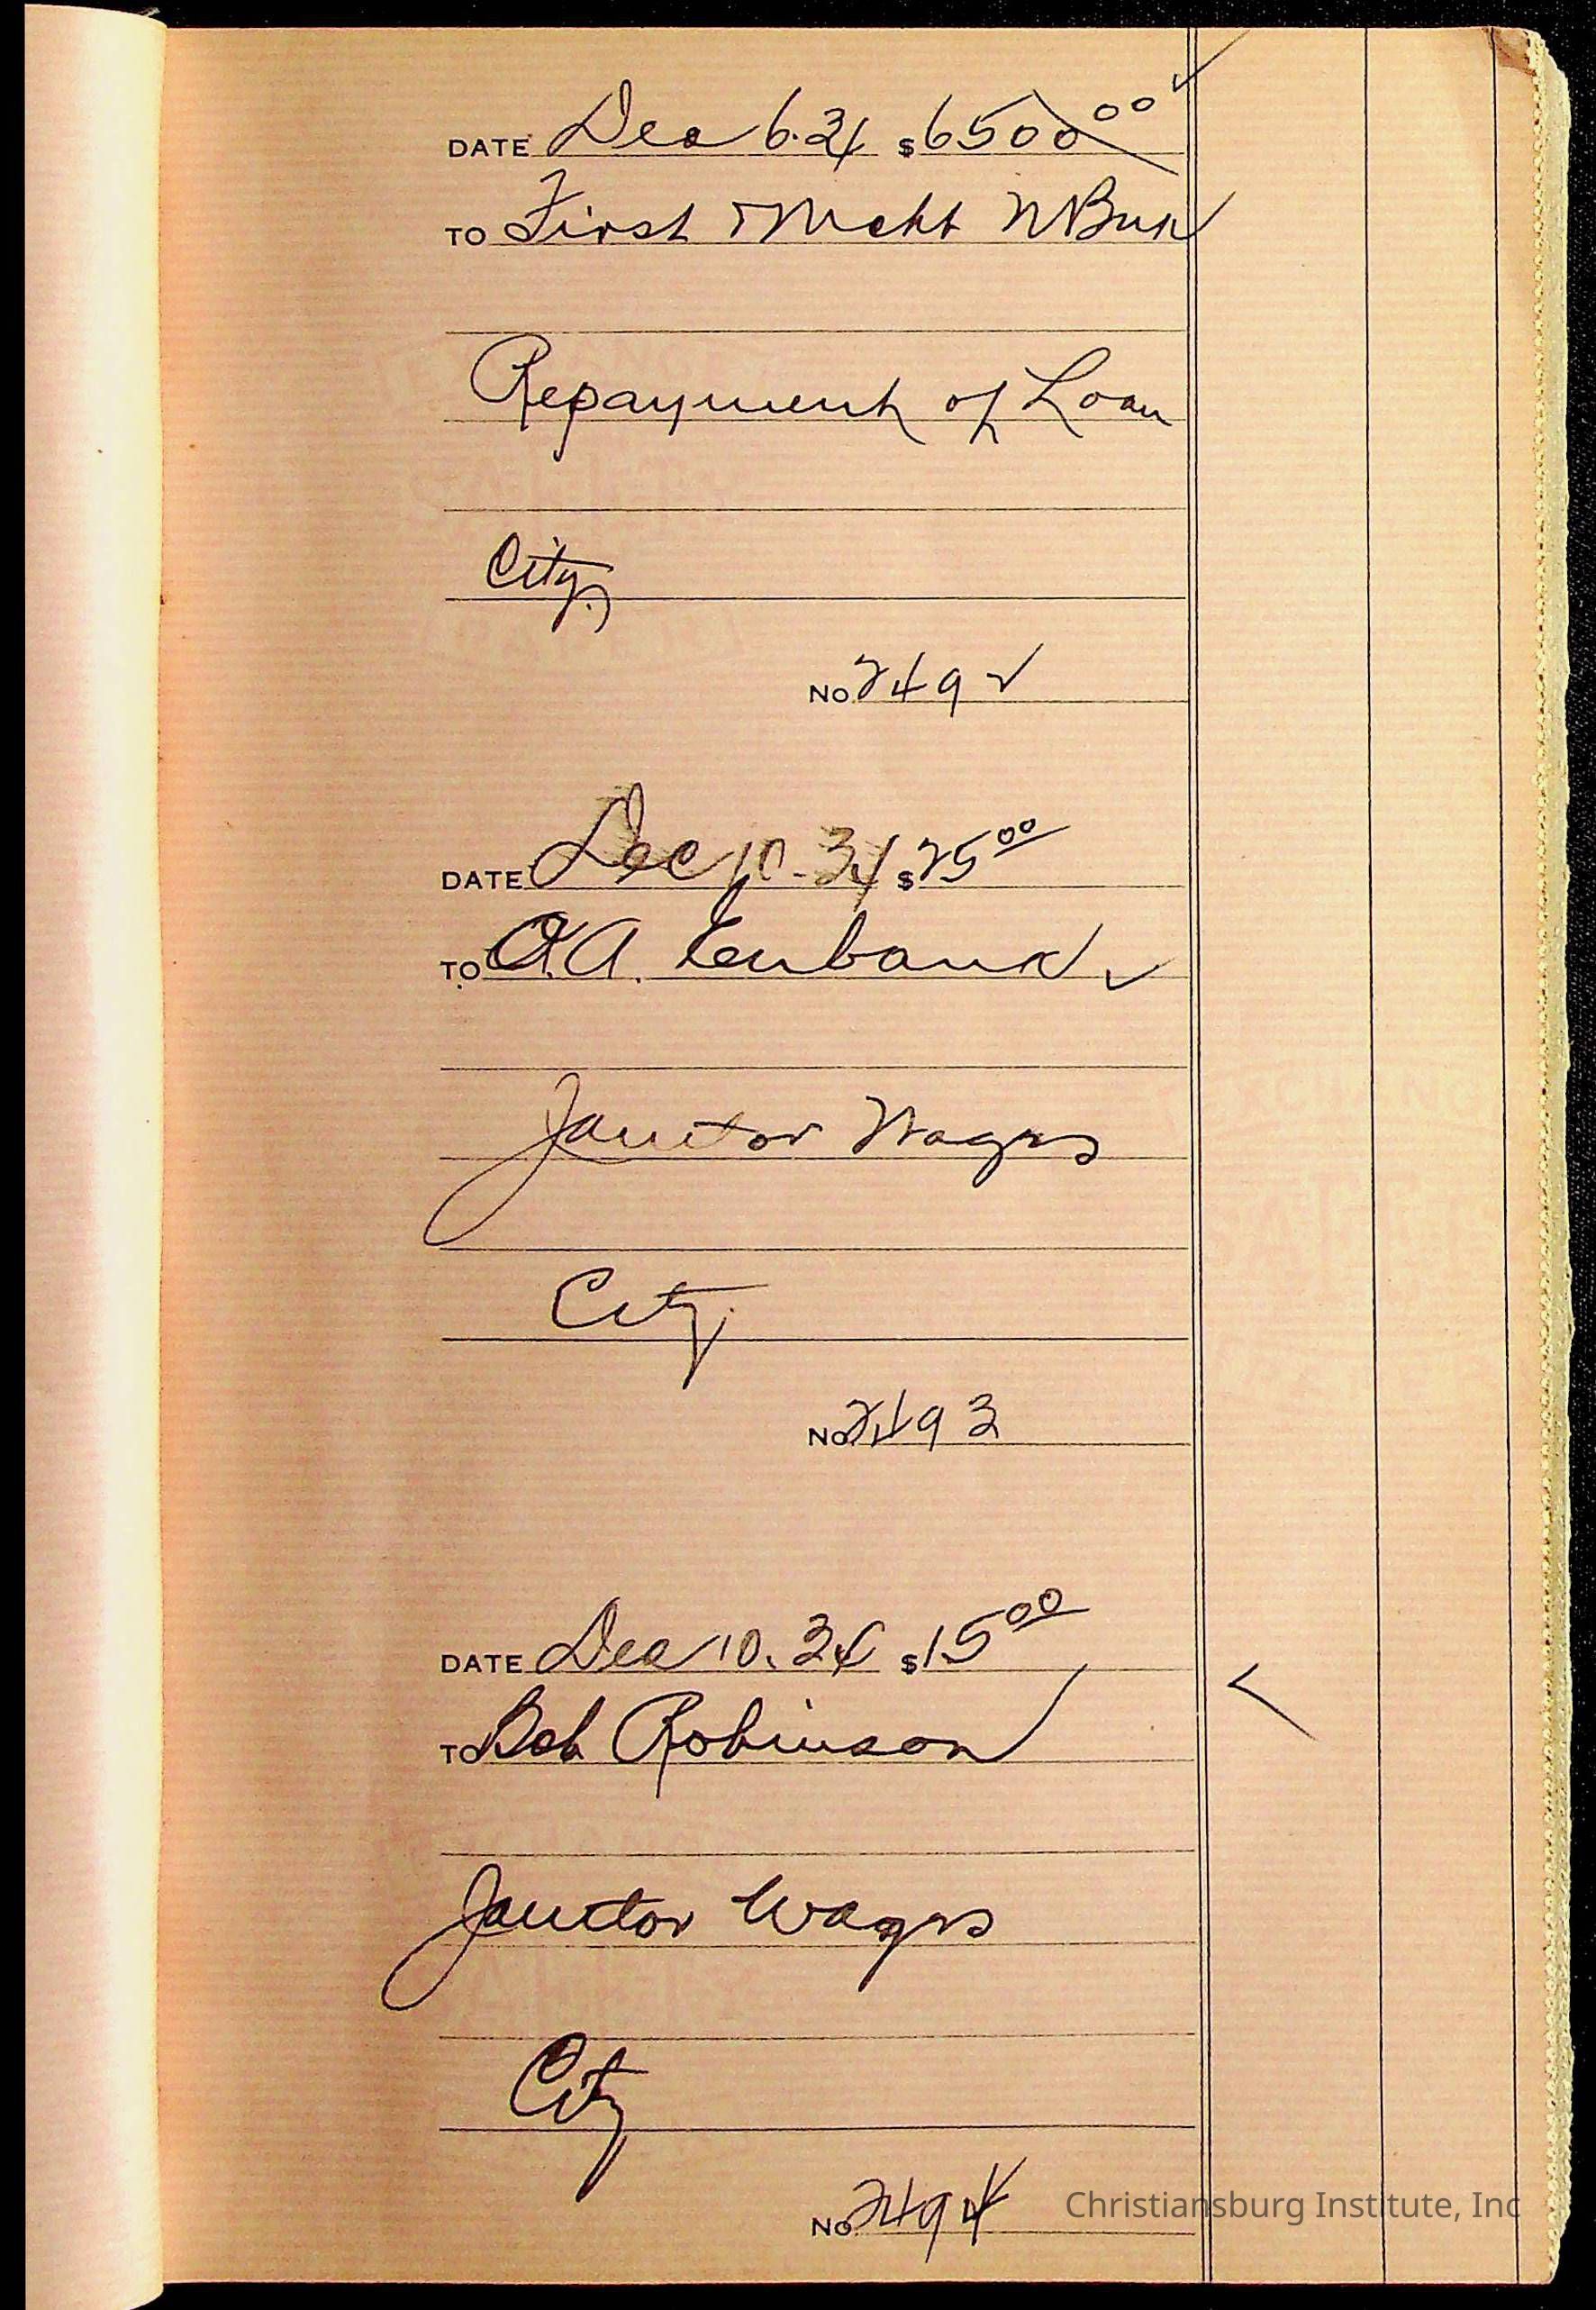 DATE Dec 6.34 $6500 00
TO First & Mcht N Bank
Repayment of Loan
City
No 2492
DATE Dec 10.34 $25 00
TO O.A. Eubank
Janitor Wages
City
No 2493
DATE Dec 10.34 $15 00
TO Bob Robinson
Janitor Wages
City
No 2494
Christiansburg Institute, Inc